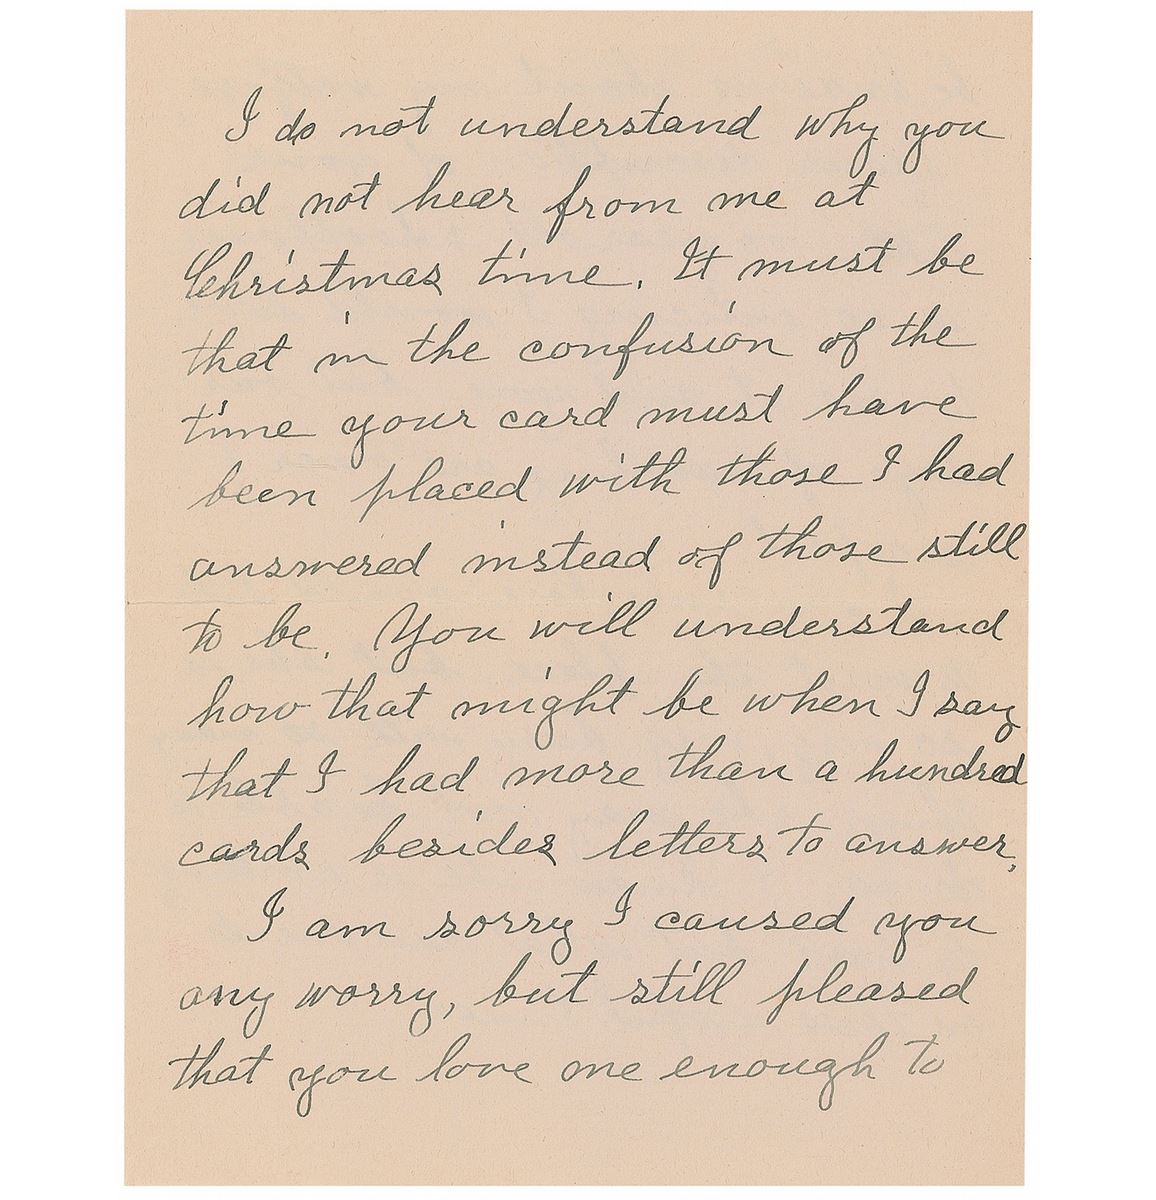 I do not understand why you
did not hear from me at
Christmas time. It must be
that in the confusion of the
time your card must have
been placed with those I had
answered instead of those still
to be. You will understand
how that might be when I say
that I had more than a hundred
cards besides letters to answer.
I am sorry I caused you
any worry, but still pleased
that you love me enough to